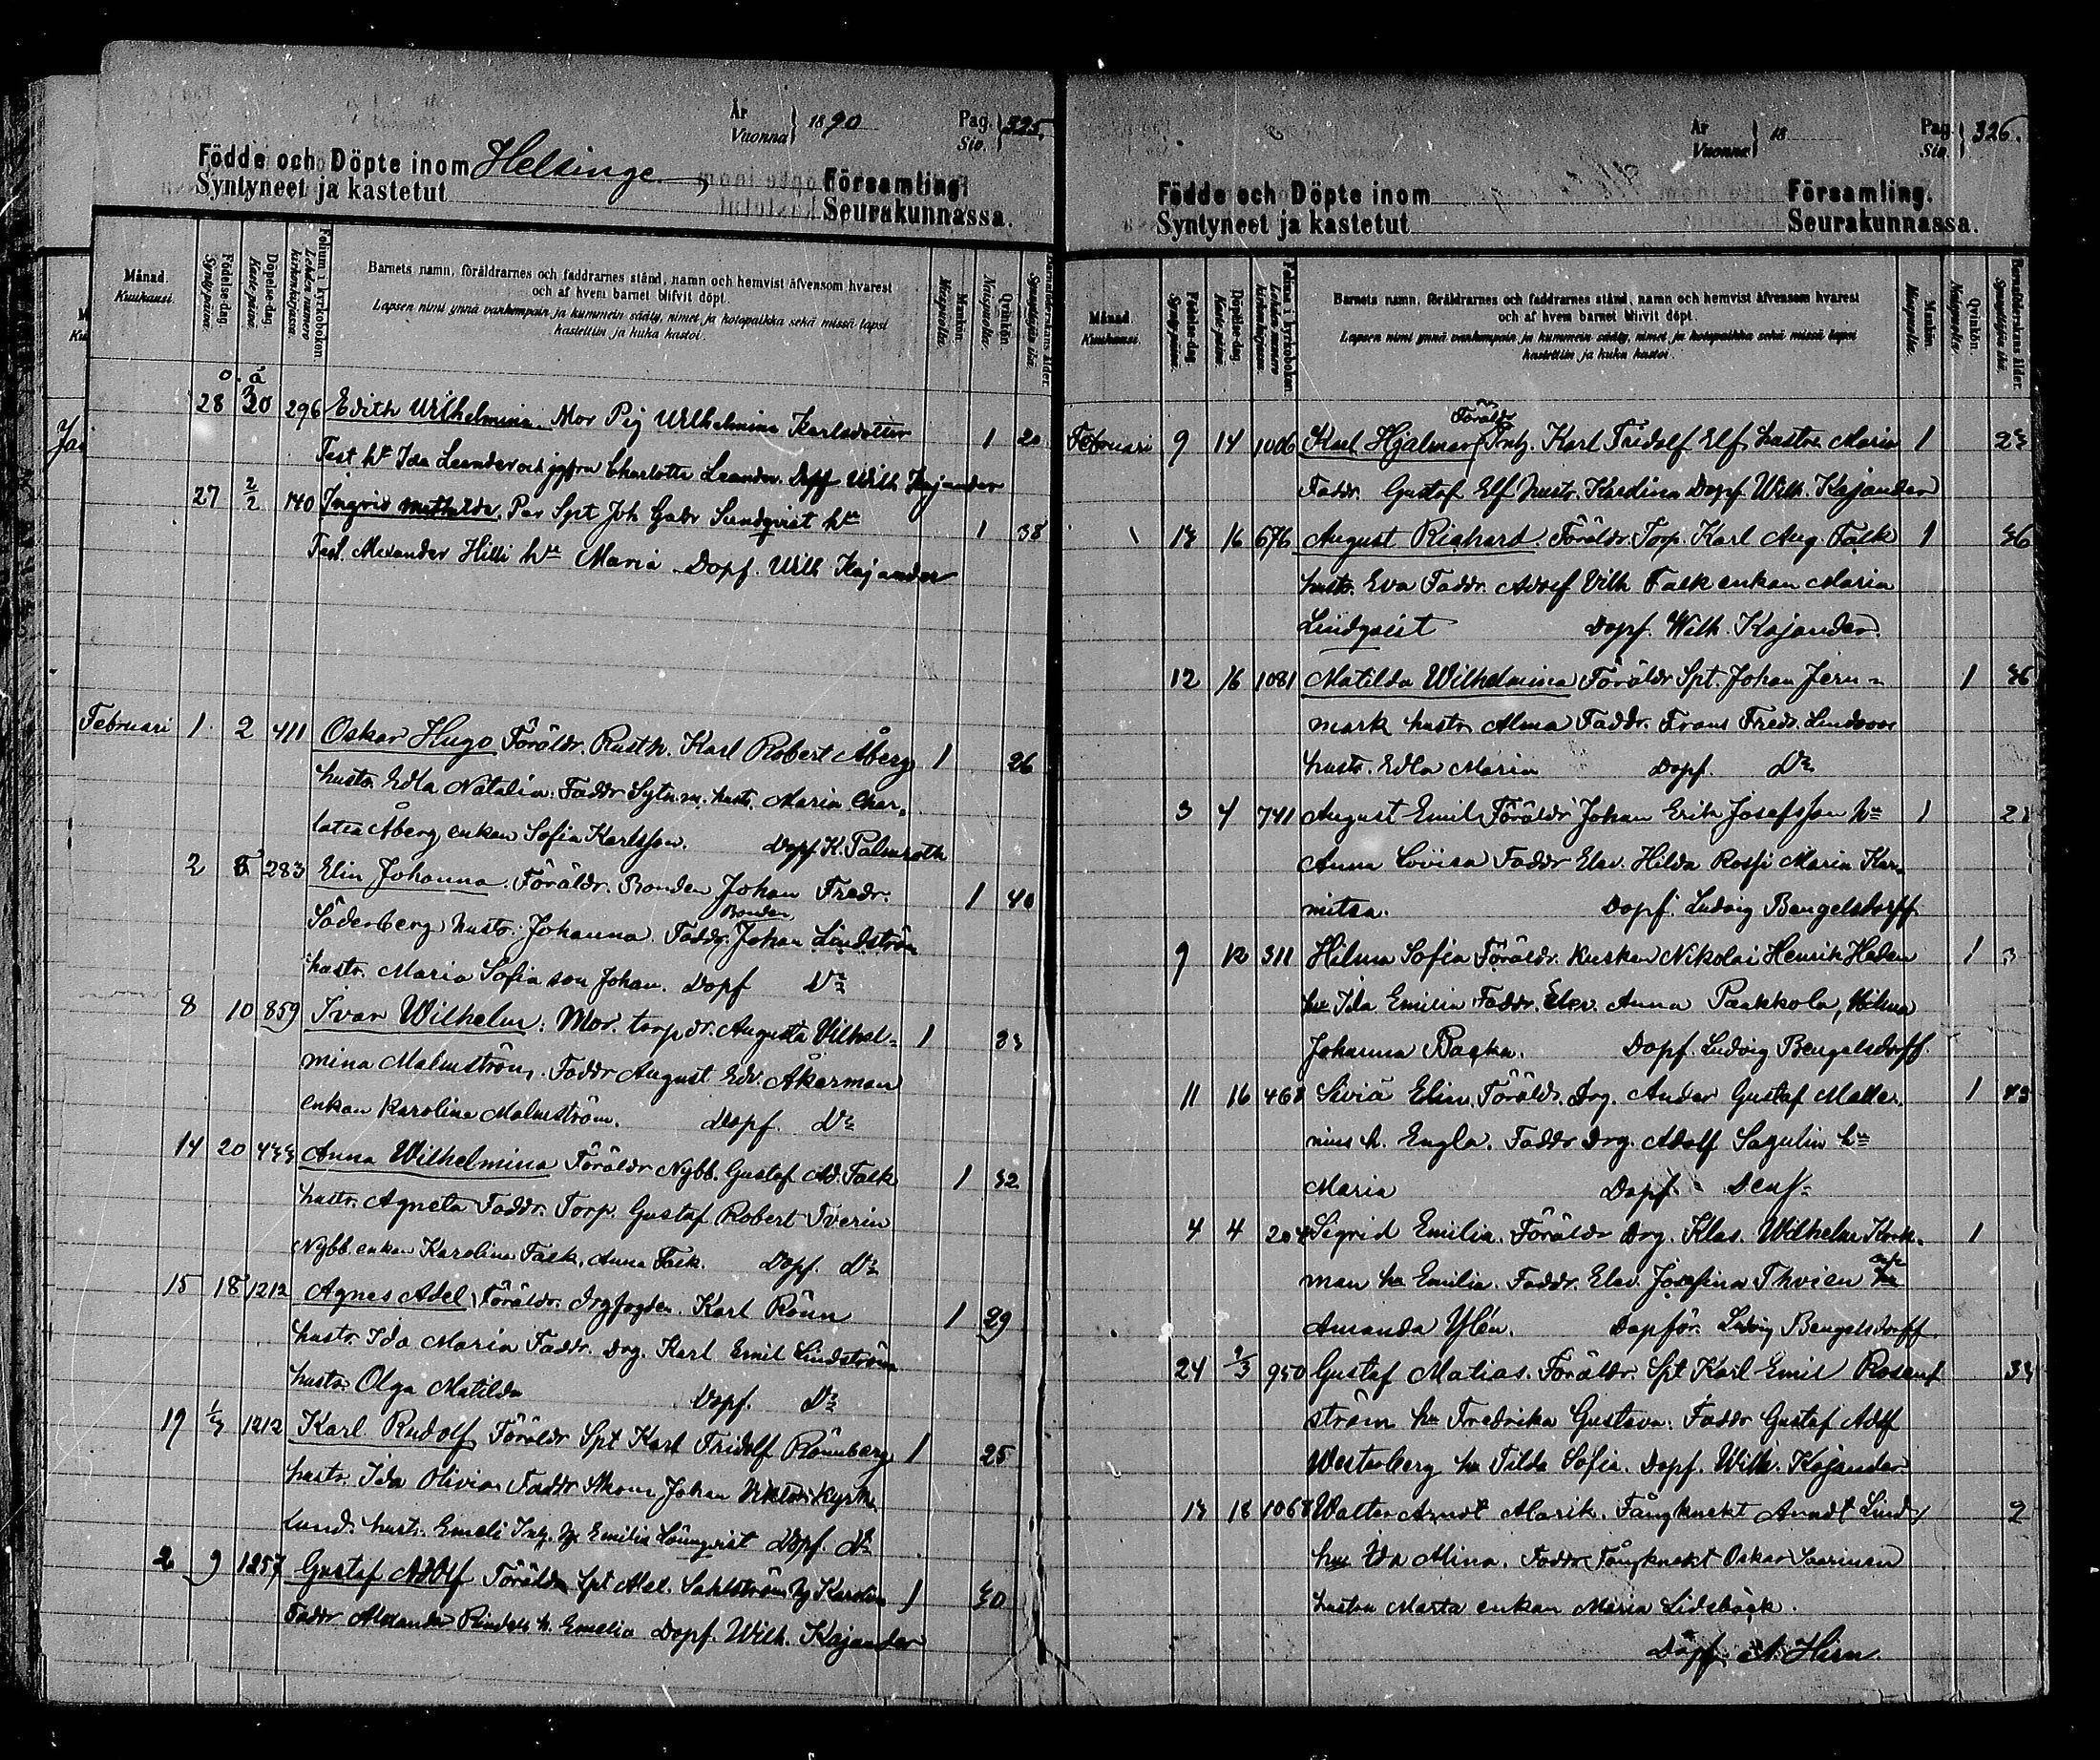 År
Vuonna } 1890
Pag.
Siv. } 325.
Födde och Döpte inom Helsinge Församling.
Syntyneet ja kastetut Seurakunnassa.
Månad. Kuukausi.
Födelse-dag. Syntypäivä.
Döpelse-dag. Kaste-päivä.
Folium i kyrkoboken. Lehden numero kirkonkirjassa.
Barnets namn, föräldrarnes och faddrarnes stånd, namn och hemvist äfvensom hvarest
och af hvem barnet blifvit döpt.
Lapsen nimi ynnä vanhempain ja kummein sääty, nimet ja kotopaikka sekä missä lapsi
kastettiin ja kuka kastoi.
Mankön. Miespuolia.
Qvinkön. Naispuolia.
Barnaföderskans ålder. Synnyttäjän ikä.
28 30 296 Edith Wilhelmina. Mor Pig Wilhelmina Karlsdotter 1 20
Test hu Ida Leander och jgfru Charlotte Leander. Dopf Wilh Kajander
27 2/2 140 Ingrid Mathilda. Par Spt Joh Gabr Sundqvist hu 1 38
Test. Alexander Hilli hu Maria. Dopf. Wilh Kajander
Februari 1. 2 411 Oskar Hugo Föräldr. Rusth. Karl Robert Åberg 1 26
hustr. Edla Natalia. Faddr Sytn.m. hustr. Maria Char-
lotta Åberg enkan Sofia Karlsson. Dopf K. Palmroth
2 5 283 Elin Johanna. Föräldr. Bonden Johan Fredr. 1 40
Söderberg hustr. Johanna. Faddr. Bonden Johan Lindström
hustr. Maria Sofia son Johan. Dopf Do
8 10 859 Ivar Wilhelm. Mor. torpdr. Augusta Vilhel- 1 33
mina Malmström. Faddr August Edv. Åkerman
enkan Karolina Malmström. Dopf. Do
14 20 433 Anna Wilhelmina Föräldr Nybb. Gustaf Ad. Falk 1 32
hustr. Agneta Faddr. Torp. Gustaf Robert Tverin
Nybb. enkan Karolina Falk, Anna Falk. Dopf. Do
15 18 1212 Agnes Adel Föräldr. Drgfogden. Karl Rönn 1 29
hustr. Ida Maria Faddr. Drg. Karl Emil Lindström
hustr. Olga Matilda Dopf. Do
19 1/3 1212 Karl Rudolf Föräldr Spt Karl Fridolf Rönnberg 1 25
hustr. Ida Olivia Faddr Johan Viktor Kyrk
lund. hustr. Emeli Emilia Lönnqvist Dopf. Do
2 9 1257 Gustaf Adolf Föräldr Spt Alex. Sahlström Karolina 1 30
Faddr Alexander h. Emelia Dopf. Wilh. Kajander
År
Vuonna } 18
Pag.
Siv. } 326.
Födde och Döpte inom Församling.
Syntyneet ja kastetut Seurakunnassa.
Månad. Kuukausi.
Födelse-dag. Syntypäivä.
Döpelse-dag. Kaste-päivä.
Folium i kyrkoboken. Lehden numero kirkonkirjassa.
Barnets namn, föräldrarnes och faddrarnes stånd, namn och hemvist äfvensom hvarest
och af hvem barnet blifvit döpt.
Lapsen nimi ynnä vanhempain ja kummein sääty, nimet ja kotopaikka sekä missä lapsi
kastettiin ja kuka kastoi.
Mankön. Miespuolia.
Qvinkön. Naispuolia.
Barnaföderskans ålder. Synnyttäjän ikä.
Februari 9 14 1006 Karl Hjalmar Föräldr Inh. Karl Fridolf Elf hustru Maria 1 23
Faddr. Gustaf Elf hustr. Kardina Dopf. Wilh. Kajander
13 16 676 August Richard. Föräldr. Torp. Karl Aug. Falk 1 36
hustr. Eva Faddr. Adolf Vilh Falk enkan Maria
Lindqvist Dopf. Wilh. Kajander.
12 16 1081 Matilda Wilhelmina Föräldr Spt. Johan Jern- 1 36
mark hustr. Alma Faddr. Frans Fredr. Lindroos
hustr. Edla Maria Dopf. Do
3 4 741 August Emil Föräldr Johan Erik Josefsson hu 1
Anna Lovisa Faddr Elev. Hilda Rossi Maria Kar-
mitsa. Dopf. Ludvig Bengelsdorff.
9 12 311 Hilma Sofia Föräldr. Kusken Nikolai Henrik Heden 1 3
hu Ida Emilia Faddr. Elev. Anna Paakkola, Hilma
Johanna Backa. Dopf. Ludvig Bengelsdorff.
11 16 468 Sivia Elin. Föräldr. Drg. Ander Gustaf Malle- 1 43
nius h. Engla. Faddr Drg. Adolf Sagulin hu
Maria Dopf. Dens.
4 4 204 Sigrid Emilia. Föräldr Drg. Klas. Wilhelm Kork- 1
man hu Emilia. Faddr. Elev. Josefina Thvien och
Amanda Ylén. Dopför. Ludvig Bengelsdorff.
24 2/3 950 Gustaf Matias. Föräldr. Spt Karl Emil Rosen
ström hu Fredrika Gustava. Faddr Gustaf Adolf
Westerberg hu Tilda Sofia. Dopf. Wilh. Kajander
13 18 1068 Walter Arndt Marik. Fångknekt Arndt Lind 2
hu Ida Mina. Faddr Fångknekt Oskar Saarinen
hustru Marta enkan Maria Lidebäck.
Döpf. A. Hirn.